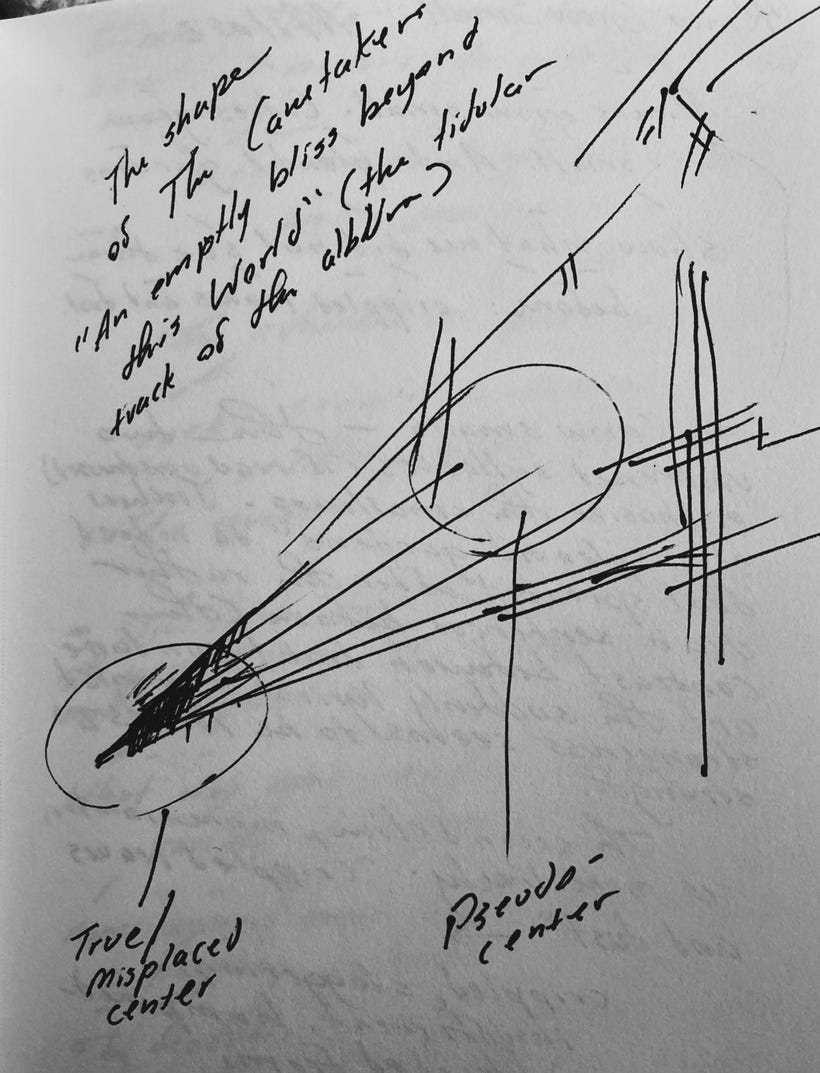 The shape
of The Caretaker
"An emptly bliss beyond
this World" (the tidular
track of the album)
True/
Misplaced
center
Pseudo-
center